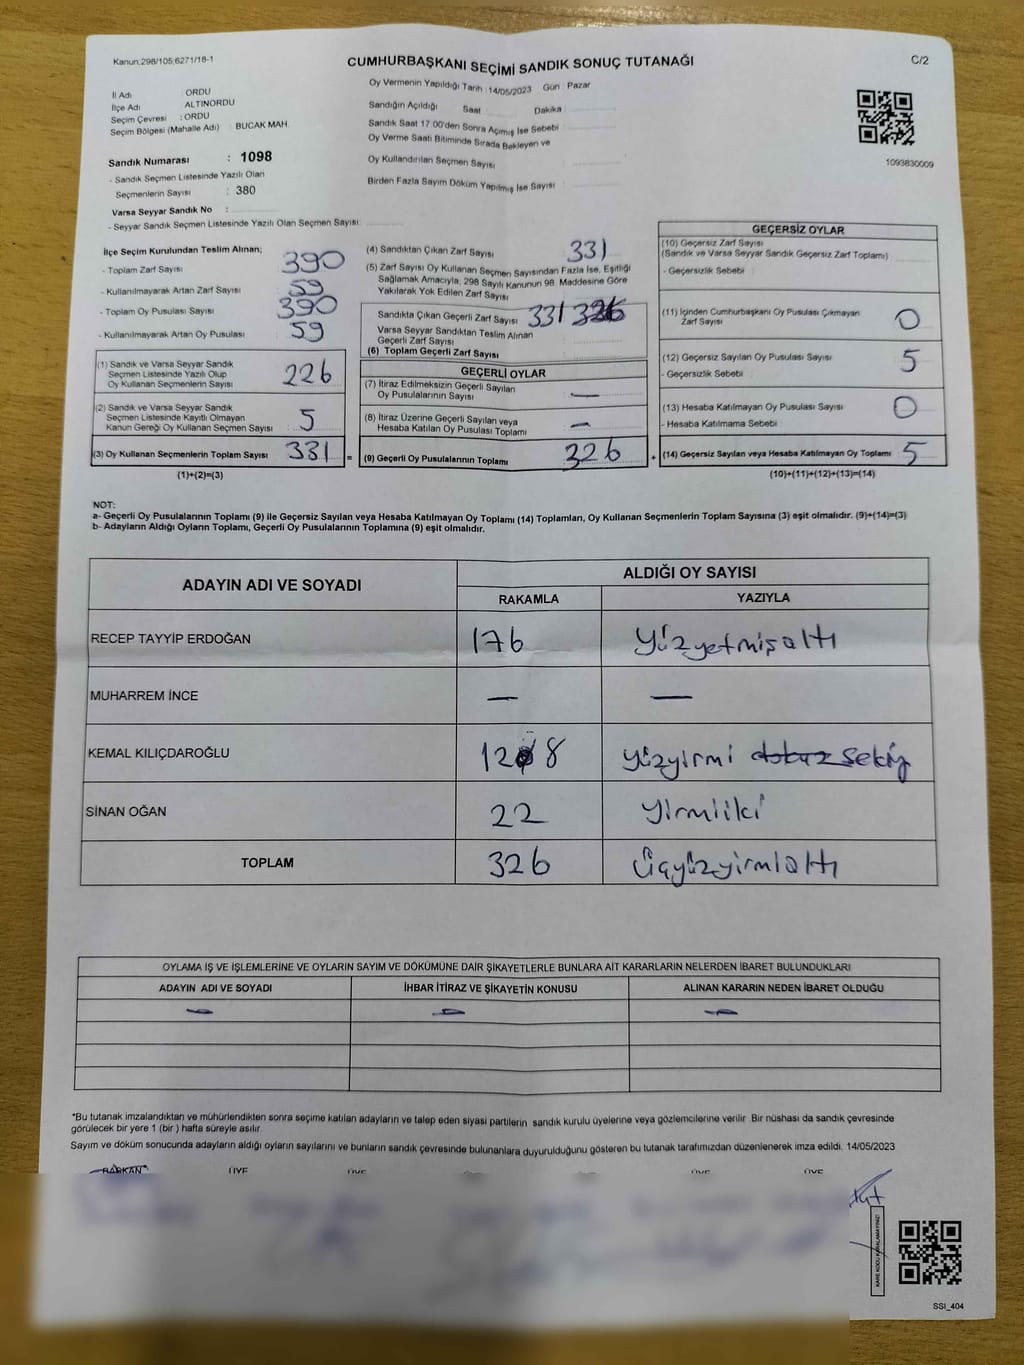 Kanun:298/105;6271/18-1
CUMHURBAŞKANI SEÇİMİ SANDIK SONUÇ TUTANAĞI
C/2
İl Adı ORDU
İlçe Adı ALTINORDU
Seçim Çevresi : ORDU
Seçim Bölgesi (Mahalle Adı) : BUCAK MAH.
Sandık Numarası : 1098
- Sandık Seçmen Listesinde Yazılı Olan
Seçmenlerin Sayısı : 380
Varsa Seyyar Sandık No :
- Seyyar Sandık Seçmen Listesinde Yazılı Olan Seçmen Sayısı:
Oy Vermenin Yapıldığı Tarih :14/05/2023 Gün : Pazar
Sandığın Açıldığı Saat Dakika
Sandık Saat 17:00'den Sonra Açımış İse Sebebi :
Oy Verme Saati Bitiminde Sırada Bekleyen ve
Oy Kullandırılan Seçmen Sayısı
Birden Fazla Sayım Döküm Yapılmış İse Sayısı :
1093830009
İlçe Seçim Kurulundan Teslim Alınan;
- Toplam Zarf Sayısı 390
- Kullanılmayarak Artan Zarf Sayısı 59
- Toplam Oy Pusulası Sayısı 390
- Kullanılmayarak Artan Oy Pusulası 59
(1) Sandık ve Varsa Seyyar Sandık
Seçmen Listesinde Yazılı Olup
Oy Kullanan Seçmenlerin Sayısı 226
(2) Sandık ve Varsa Seyyar Sandık
Seçmen Listesinde Kayıtlı Olmayan
Kanun Gereği Oy Kullanan Seçmen Sayısı 5
(3) Oy Kullanan Seçmenlerin Toplam Sayısı 331 =
(1)+(2)=(3)
(4) Sandıktan Çıkan Zarf Sayısı 331
(5) Zarf Sayısı Oy Kullanan Seçmen Sayısından Fazla İse, Eşitliği
Sağlamak Amacıyla, 298 Sayılı Kanunun 98. Maddesine Göre
Yakılarak Yok Edilen Zarf Sayısı
Sandıkta Çıkan Geçerli Zarf Sayısı : 331 326
Varsa Seyyar Sandıktan Teslim Alınan
Geçerli Zarf Sayısı
(6) Toplam Geçerli Zarf Sayısı
GEÇERLİ OYLAR
(7) İtiraz Edilmeksizin Geçerli Sayılan
Oy Pusulalarının Sayısı —
(8) İtiraz Üzerine Geçerli Sayılan veya
Hesaba Katılan Oy Pusulası Toplamı —
(9) Geçerli Oy Pusulalarının Toplamı 326 +
GEÇERSİZ OYLAR
(10) Geçersiz Zarf Sayısı
(Sandık ve Varsa Seyyar Sandık Geçersiz Zarf Toplamı)
- Geçersizlik Sebebi
(11) İçinden Cumhurbaşkanı Oy Pusulası Çıkmayan
Zarf Sayısı 0
(12) Geçersiz Sayılan Oy Pusulası Sayısı 5
- Geçersizlik Sebebi
(13) Hesaba Katılmayan Oy Pusulası Sayısı 0
- Hesaba Katılmama Sebebi
(14) Geçersiz Sayılan veya Hesaba Katılmayan Oy Toplamı 5
(10)+(11)+(12)+(13)=(14)
NOT:
a- Geçerli Oy Pusulalarının Toplamı (9) ile Geçersiz Sayılan veya Hesaba Katılmayan Oy Toplamı (14) Toplamları, Oy Kullanan Seçmenlerin Toplam Sayısına (3) eşit olmalıdır. (9)+(14)=(3)
b- Adayların Aldığı Oyların Toplamı, Geçerli Oy Pusulalarının Toplamına (9) eşit olmalıdır.
ADAYIN ADI VE SOYADI ALDIĞI OY SAYISI
RAKAMLA YAZIYLA
RECEP TAYYİP ERDOĞAN 176 Yüzyetmişaltı
MUHARREM İNCE — —
KEMAL KILIÇDAROĞLU 128 yüzyirmi dokuz sekiz
SİNAN OĞAN 22 Yirmiiki
TOPLAM 326 Üçyüzyirmialtı
OYLAMA İŞ VE İŞLEMLERİNE VE OYLARIN SAYIM VE DÖKÜMÜNE DAİR ŞİKAYETLERLE BUNLARA AİT KARARLARIN NELERDEN İBARET BULUNDUKLARI
ADAYIN ADI VE SOYADI İHBAR İTİRAZ VE ŞİKAYETİN KONUSU ALINAN KARARIN NEDEN İBARET OLDUĞU
— — —
*Bu tutanak imzalandıktan ve mühürlendikten sonra seçime katılan adayların ve talep eden siyasi partilerin sandık kurulu üyelerine veya gözlemcilerine verilir. Bir nüshası da sandık çevresinde
görülecek bir yere 1 (bir ) hafta süreyle asılır.
Sayım ve döküm sonucunda adayların aldığı oyların sayılarını ve bunların sandık çevresinde bulunanlara duyurulduğunu gösteren bu tutanak tarafımızdan düzenlenerek imza edildi. 14/05/2023
BAŞKAN ÜYE ÜYE ÜYE ÜYE
SSI_404